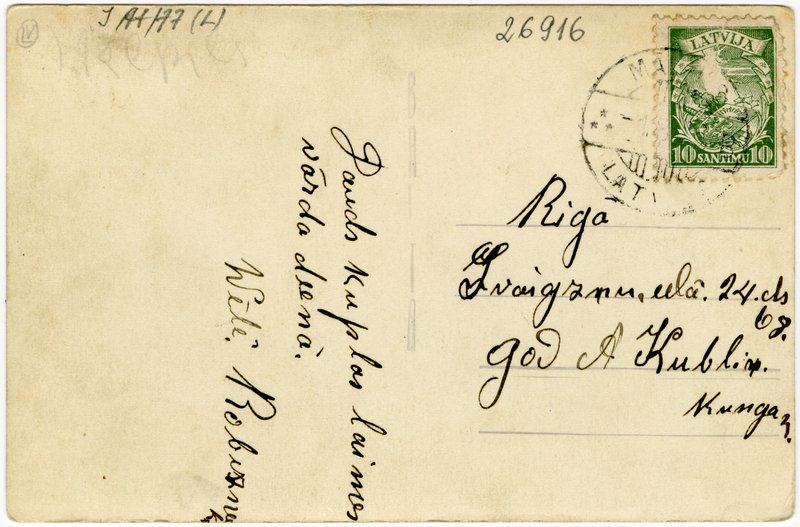 IV
J A1/A7 (L)
26916
LATVIJA
10 SANTIMU 10
MA
LATV
Dauds kuplas laimes
vārda dienā.
Wēlē. Robežne
Riga
Zvaigznu, ielā. 24. ds
68.
god A Kublin.
Kungam.